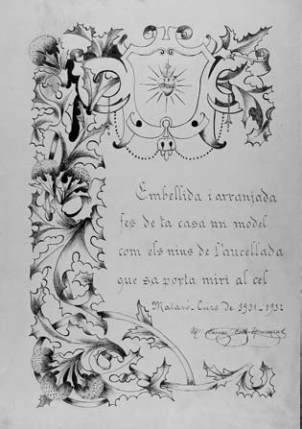 Embellida i arranjada
fes de ta casa un model
com els nius de l'aucellada
que sa porta mirt al cel
Mataró - Curs de 1931 - 1932